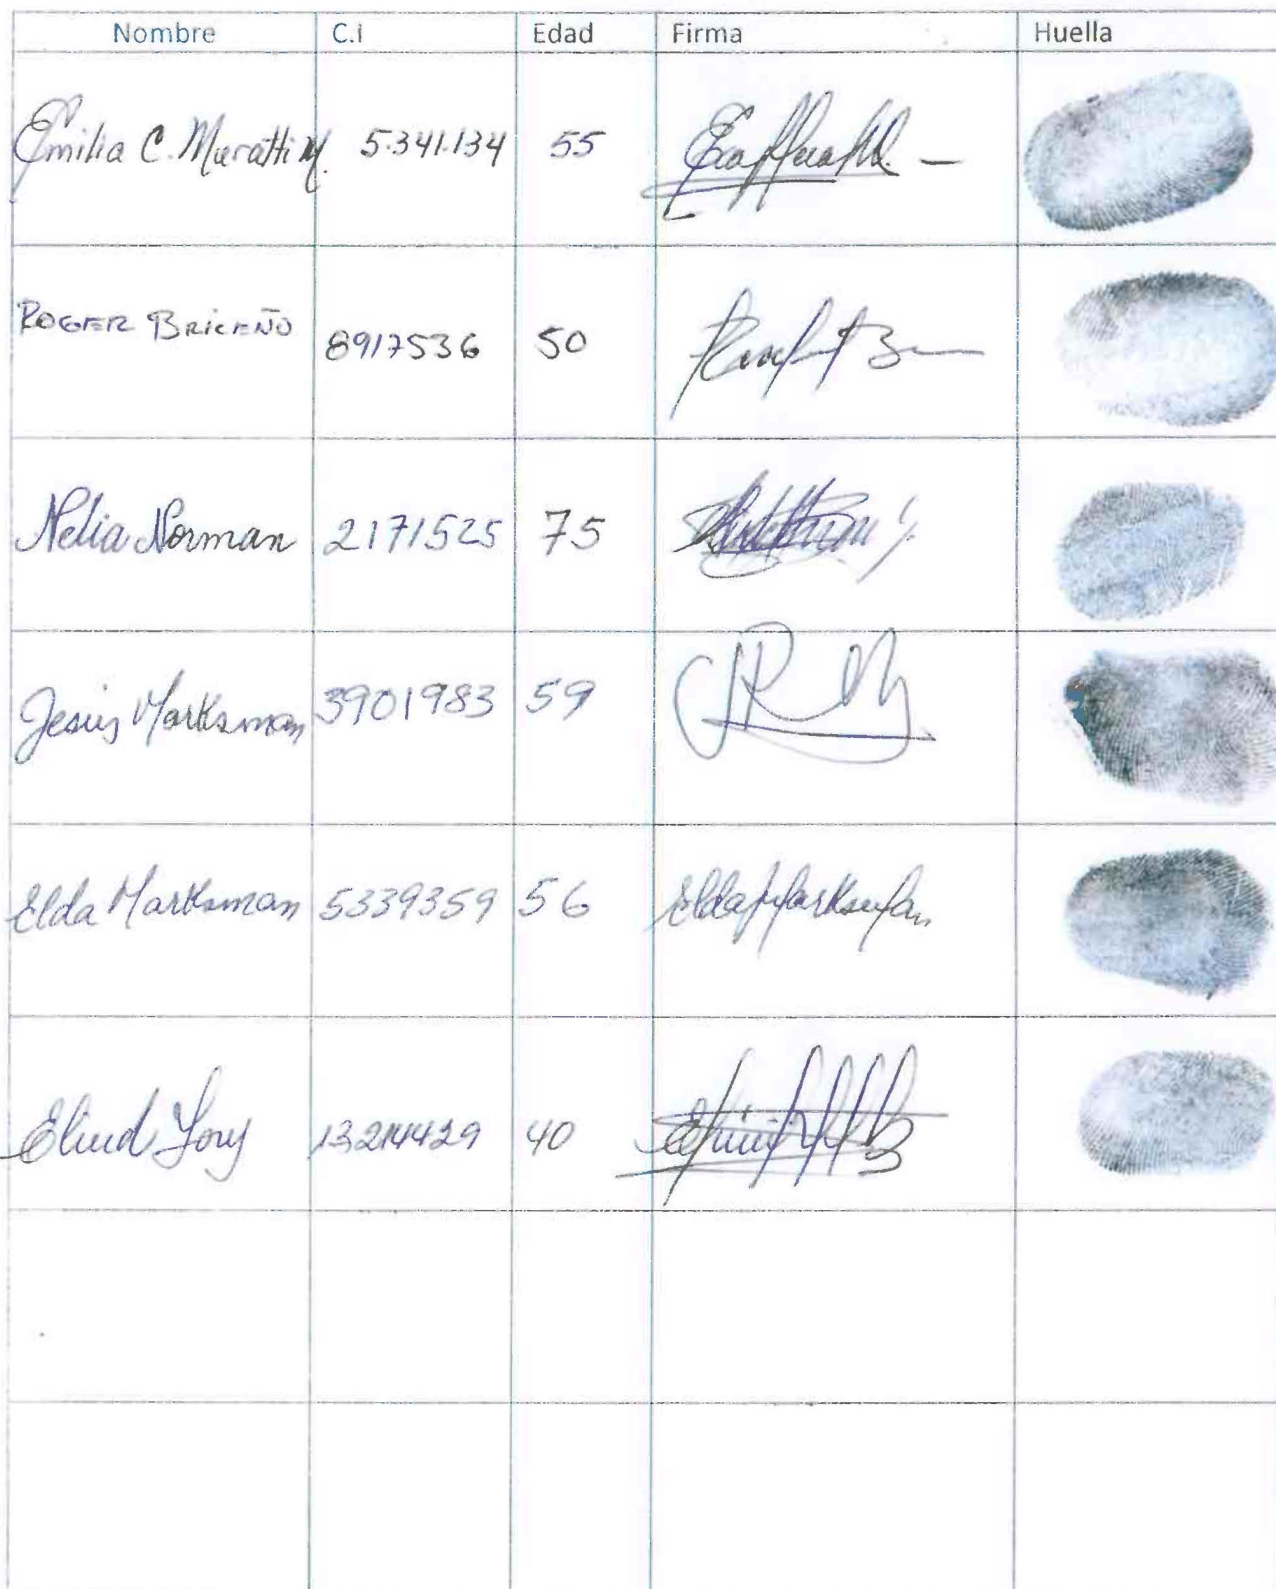 Nombre C.I Edad Firma Huella
Emilia C. Muratti M. 5.341.134 55
ROGER BRICEÑO 8917536 50
Nelia Norman 2171525 75
Jesús Marksman 3901983 59
Elda Marksman 5339359 56 Elda Marksman
Eliud 40